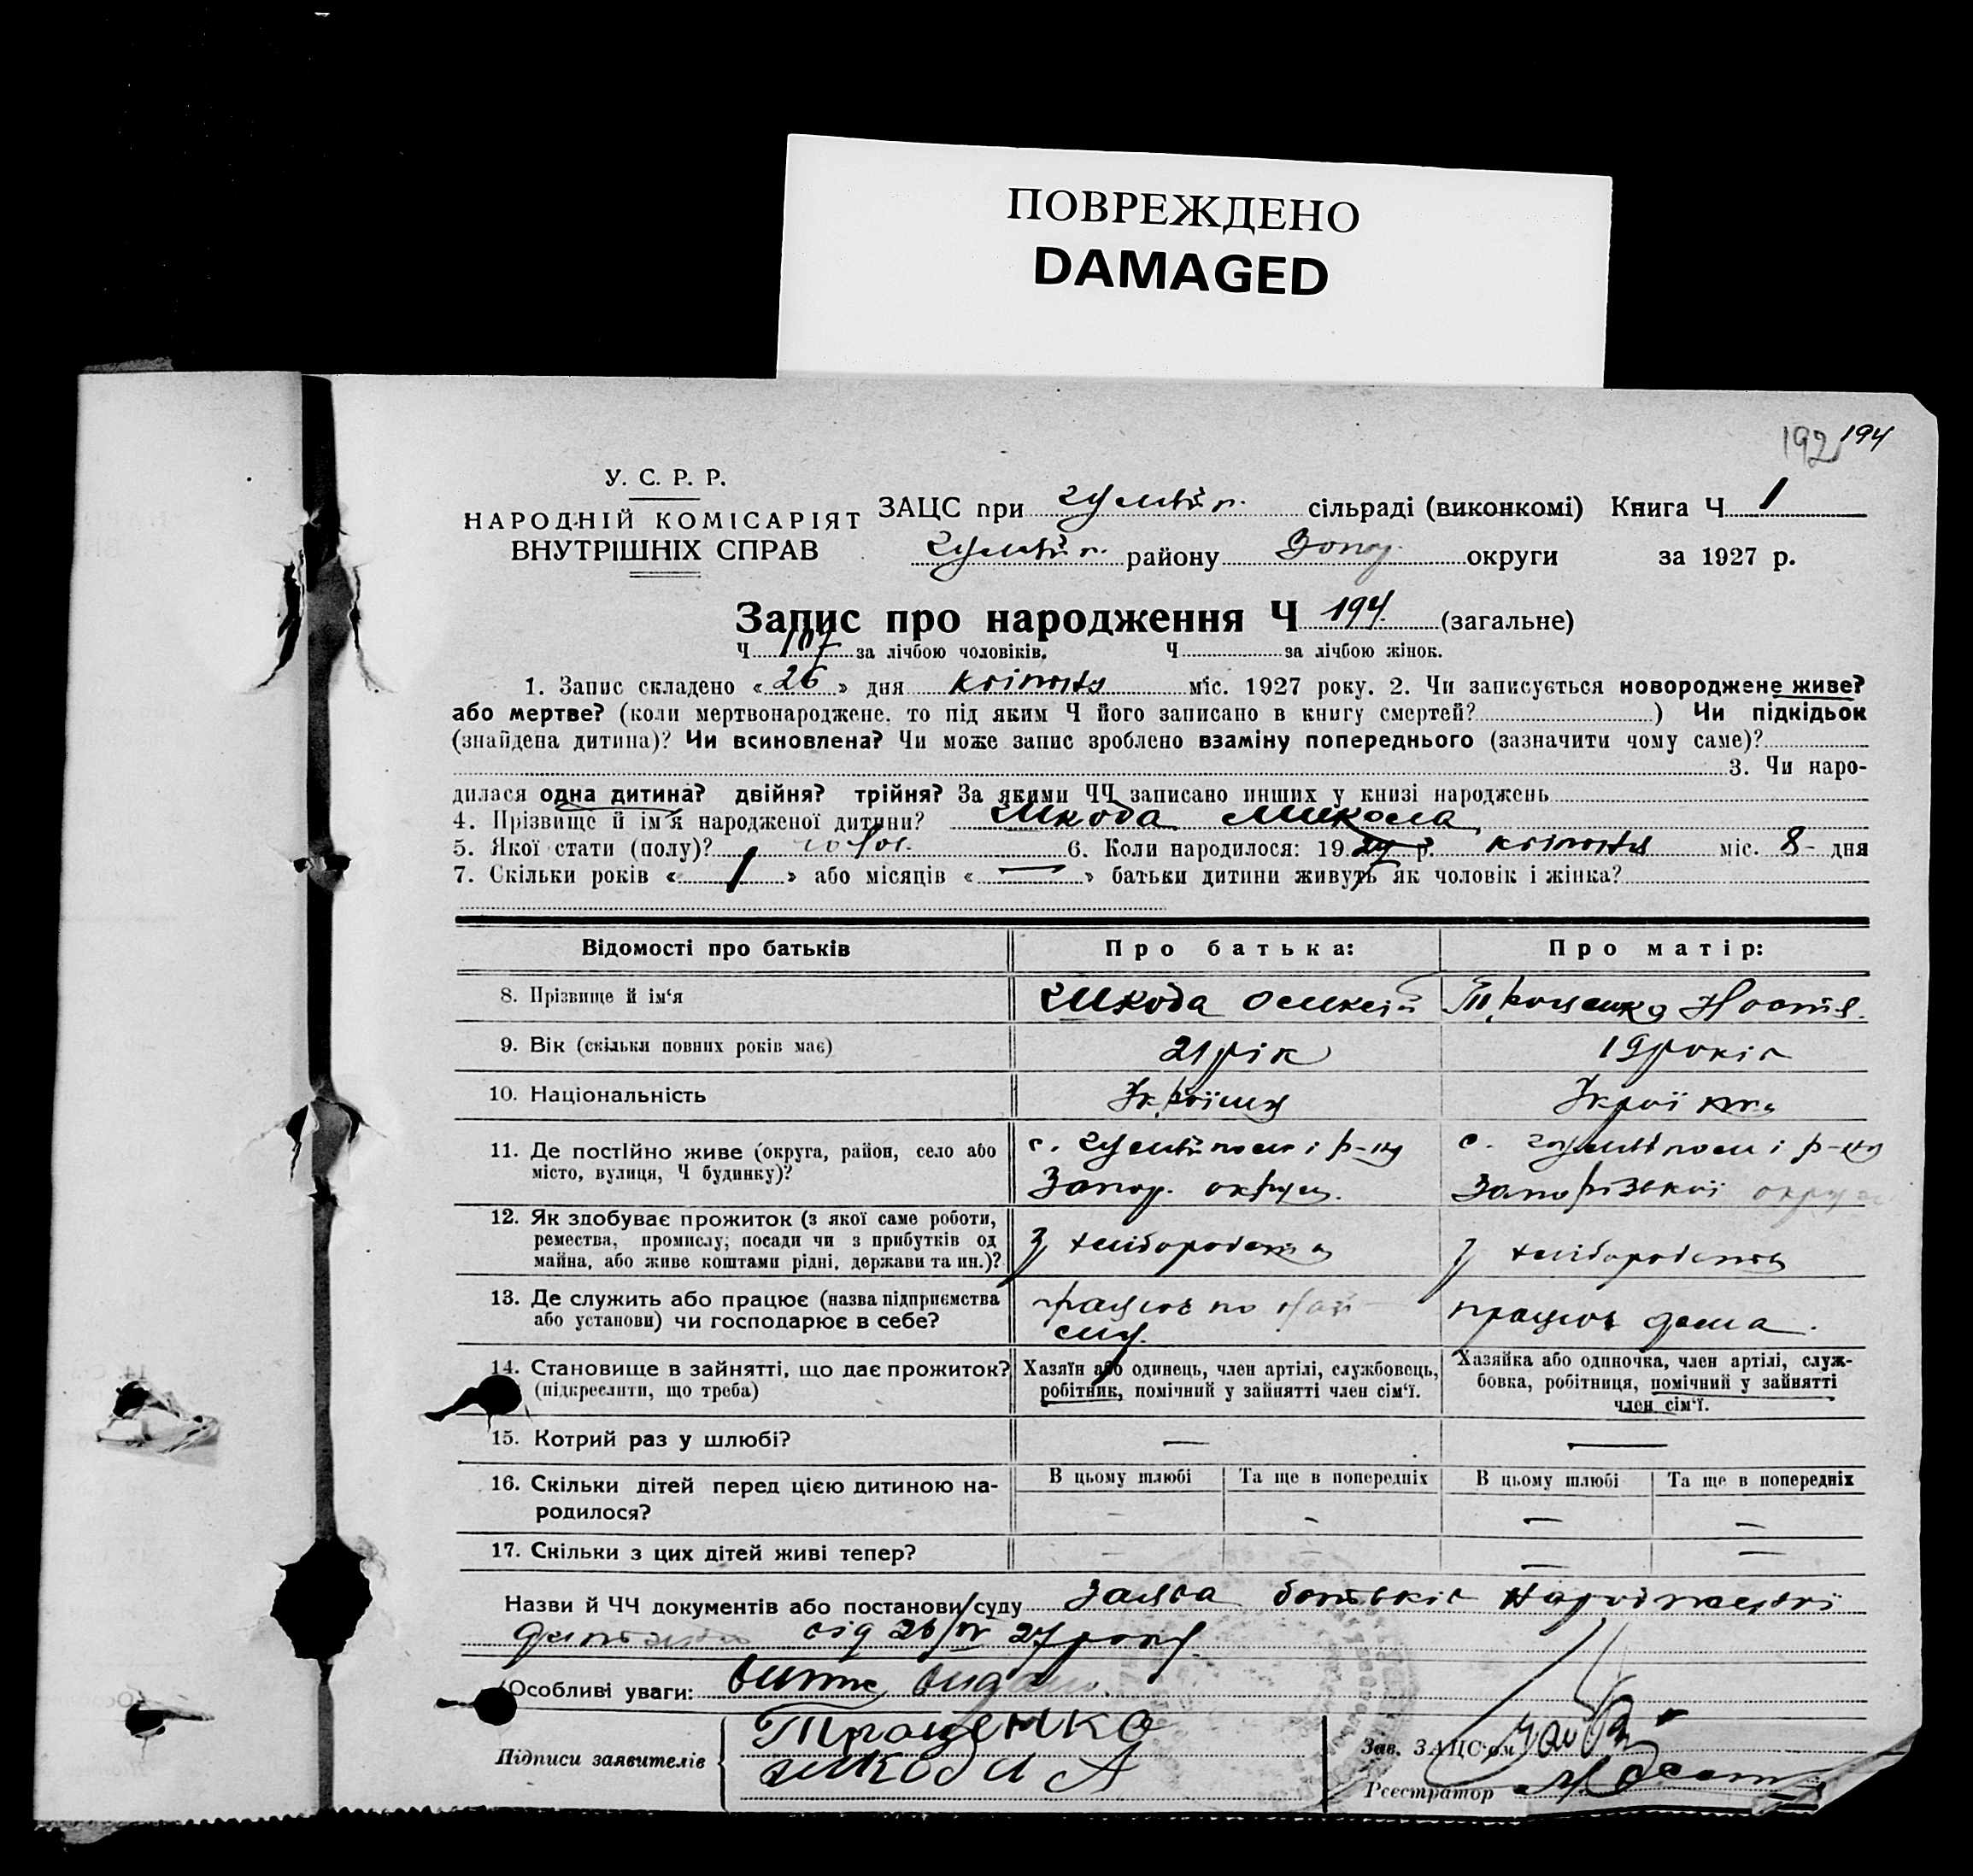 ПОВРЕЖДЕНО
DAMAGED
192 194
У. С. Р. Р.
НАРОДНІЙ КОМІСАРІЯТ
ВНУТРІШНІХ СПРАВ
ЗАЦС при сільраді (виконкомі) Книга Ч 1
району Запор. округи за 1927 р.
Запис про народження Ч 194 (загальне)
Ч 107 за лічбою чоловіків. Ч за лічбою жінок.
1. Запис складено « 26 » дня квітня міс. 1927 року. 2. Чи записується новороджене живе?
або мертве? (коли мертвонароджене, то під яким Ч його записано в книгу смертей? ) Чи підкідьок
(знайдена дитина)? Чи всиновлена? Чи може запис зроблено взаміну попереднього (зазначити чому саме)?
3. Чи наро-
дилася одна дитина? двійня? трійня? За якими ЧЧ записано инших у книзі народжень
4. Прізвище й ім'я народженої дитини? Шкода Микола
5. Якої стати (полу)? 6. Коли народилося: 1927 р. квітня міс. 8 - дня
7. Скільки років « 1 » або місяців « — » батьки дитини живуть як чоловік і жінка?
Відомості про батьків Про батька: Про матір:
8. Прізвище й ім'я Шкода Олексій Трощенко Настя
9. Вік (скільки повних років має) 21 рік 19 років
10. Національність Українець Українка
11. Де постійно живе (округа, район, село або
місто, вулиця, Ч будинку)?
с. р-ну
Запор. округи.
с. р-ну
Запорізької округи
12. Як здобуває прожиток (з якої саме роботи,
ремества, промислу; посади чи з прибутків од
майна, або живе коштами рідні, держави та ин.)?
З хліборобства
З хліборобства
13. Де служить або працює (назва підприємства
або установи) чи господарює в себе?
працює по най-
му.
працює дома.
14. Становище в зайнятті, що дає прожиток?
(підкреслити, що треба)
Хазяїн або одинець, член артілі, службовець,
робітник, помічний у зайнятті член сім'ї.
Хазяйка або одиночка, член артілі, служ-
бовка, робітниця, помічний у зайнятті
член сім'ї.
15. Котрий раз у шлюбі? — —
16. Скільки дітей перед цією дитиною на-
родилося?
В цьому шлюбі Та ще в попередніх В цьому шлюбі Та ще в попередніх
- - — —
17. Скільки з цих дітей живі тепер? - - — —
Назви й ЧЧ документів або постанови суду Заява батьків
від 26/IV 27 року
Особливі уваги: Витяг видано.
Підписи заявителів
Трощенко
Шкода А
Зав. ЗАЦС'ом
Реєстратор